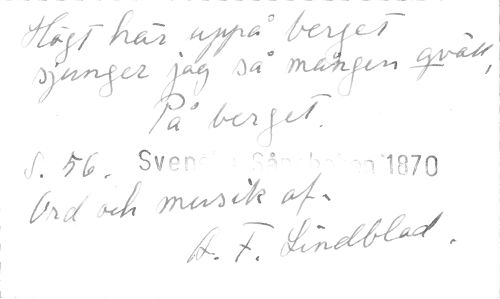 Högt här uppå berget
sjunger jag så mången qväll,
På berget.
S. 56. Svenska Sångboken 1870
Ord och musik af.
A. F. Lindblad.